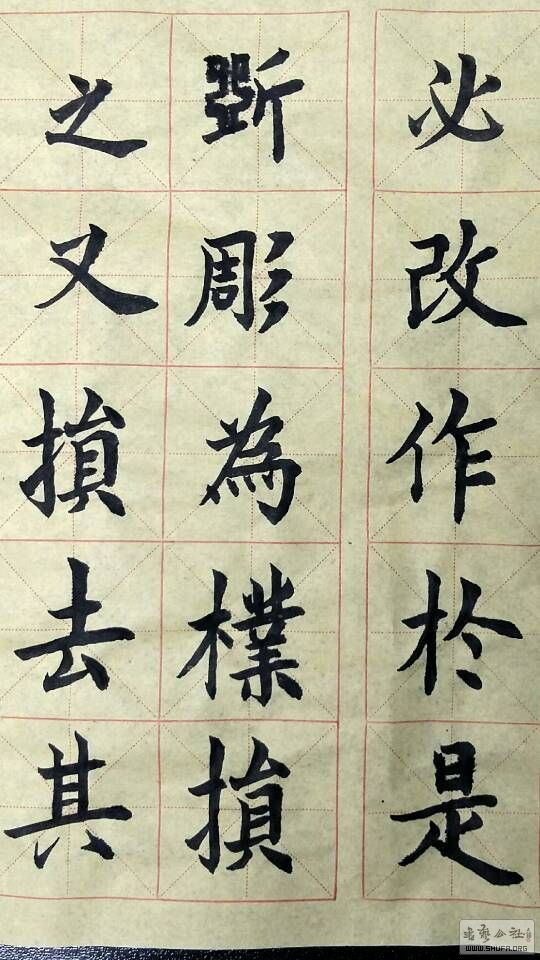 必改作於是
斲彫為樸損
之又損去其
WWW.SHUFA.ORG